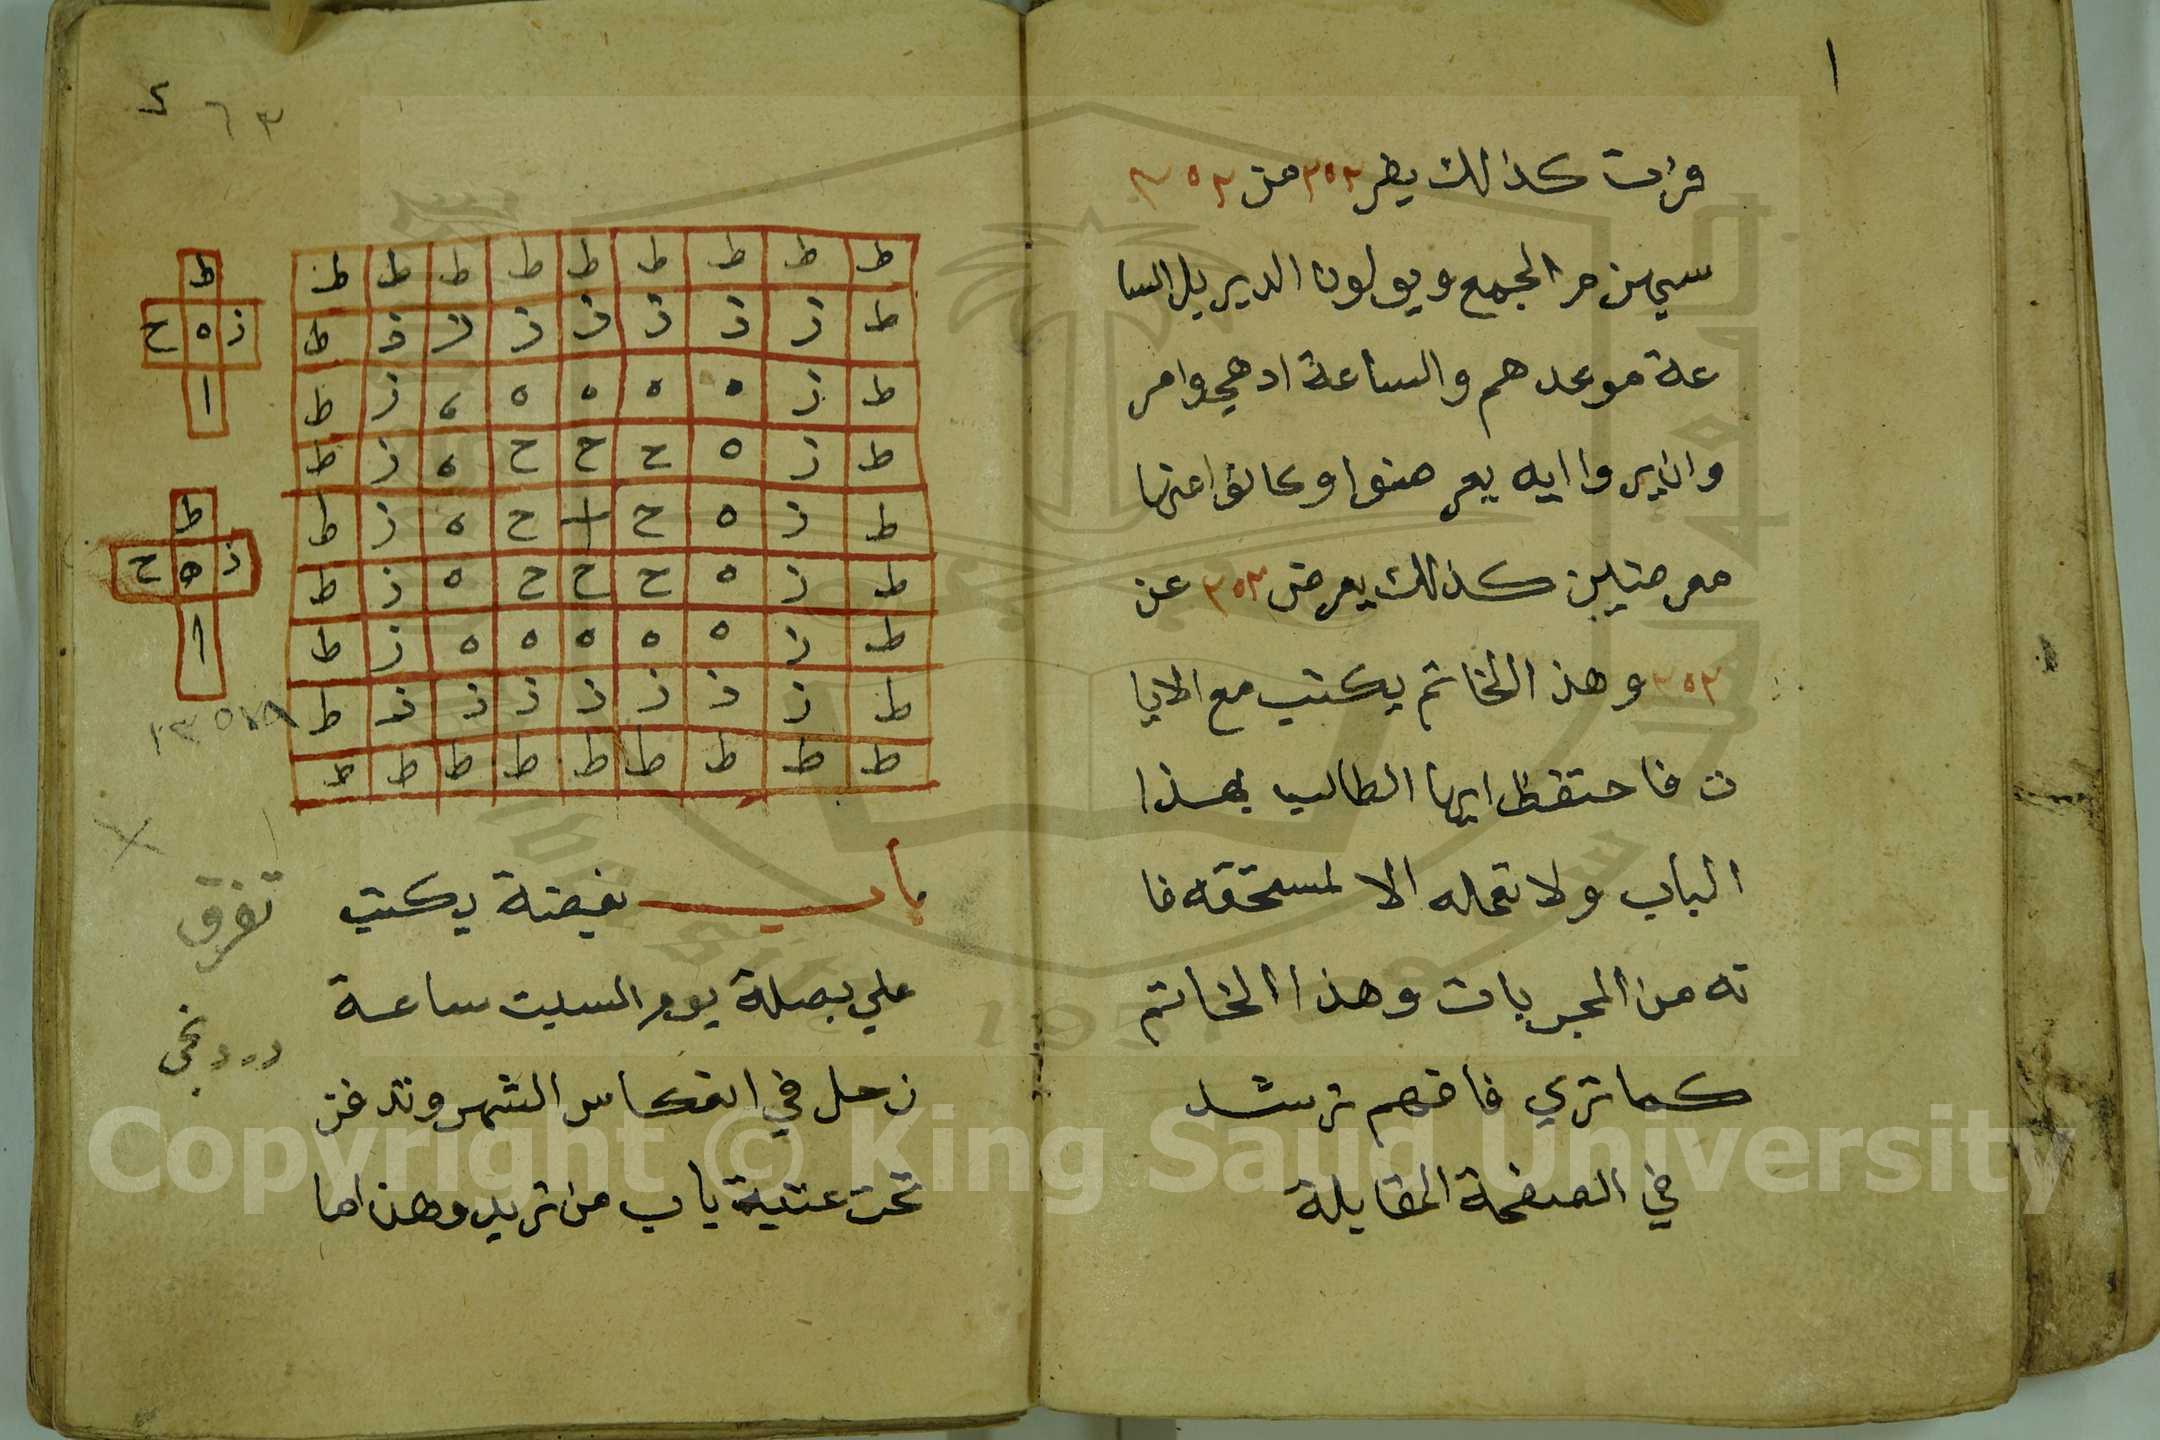 ١
فرات كذالك يطر ٣٥٢ من ٣٥٢
سيهزم الجمع ويولون الدبر بل السا
عة موعدهم والساعة ادهي وامر
وان يروا ايه يعرضوا وكانوا عنها
معرضين كذالك يعرض ٣٥٢ عن
٣٥٢ وهذا الخاتم يكتب مع الايا
ت فاحتفظ ايها الطالب بهذا
الباب ولا تعمله الا لمستحقه فا
نه من المجربات وهذا الخاتم
كما تري فافهم ترشد
في الصفحة المقابلة
٦٣
ط ط ط ط ط ط ط ط ط
ط ز ز ز ز ز ز ز ط
ط ز ه ه ه ه ه ز ط
ط ز ه ح ح ح ه ز ط
ط ز ه ح ا ح ه ز ط
ط ز ه ح ح ح ه ز ط
ط ز ه ه ه ه ه ز ط
ط ز ز ز ز ز ز ز ط
ط ط ط ط ط ط ط ط ط
ط
ز ه ح
ا
ط
ز ه ح
ا
باب بغيضة يكتب
علي بصلة يوم السبت ساعة
زحل في انعكاس الشهر وتدفن
تحت عتبة باب من تريد وهذا ما
تفرق
Copyright © King Saud University
1957